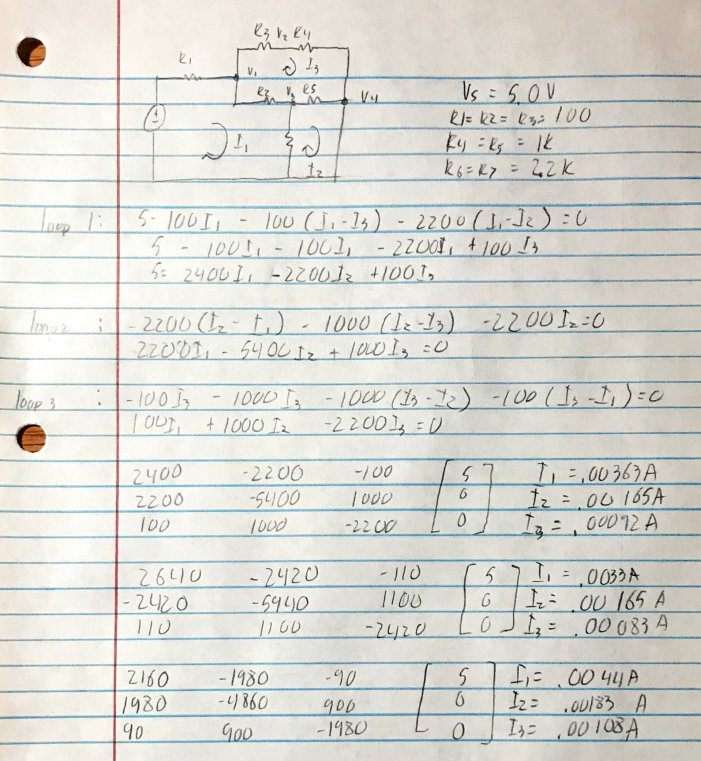 R3 V2 R4
R1
V1
I3
R2 V3 R5
V4
I1
I2
Vs = 5.0V
R1= R2= R3= 100
R4 = R5 = 1K
R6=R7 = 2.2K
loop 1: 5-100I1 - 100(I1-I3) - 2200(I1-I2)=0
5 - 100I1 - 100I1 - 2200I1 + 100I3
5= 2400I1 -2200I2 +100I3
loop 2 : -2200(I2-I1) - 1000(I2-I3) -2200I2=0
2200I1 - 5400I2 + 1000I3=0
loop 3 : -100I3 - 1000I3 -1000(I3-I2) -100(I3-I1)=0
100I1 +1000I2 -2200I3=0
2400 -2200 -100 [5] I1=.00363A
2200 -5400 1000 [0] I2=.00165A
100 1000 -2200 [0] I3=.00092A
2640 -2420 -110 [5] I1=.0033A
-2420 -5940 1100 [0] I2=.00165A
110 1100 -2420 [0] I3=.00083A
2160 -1980 -90 [5] I1=.0044A
1980 -4860 900 [0] I2=.00183 A
90 900 -1980 [0] I3=.00108A